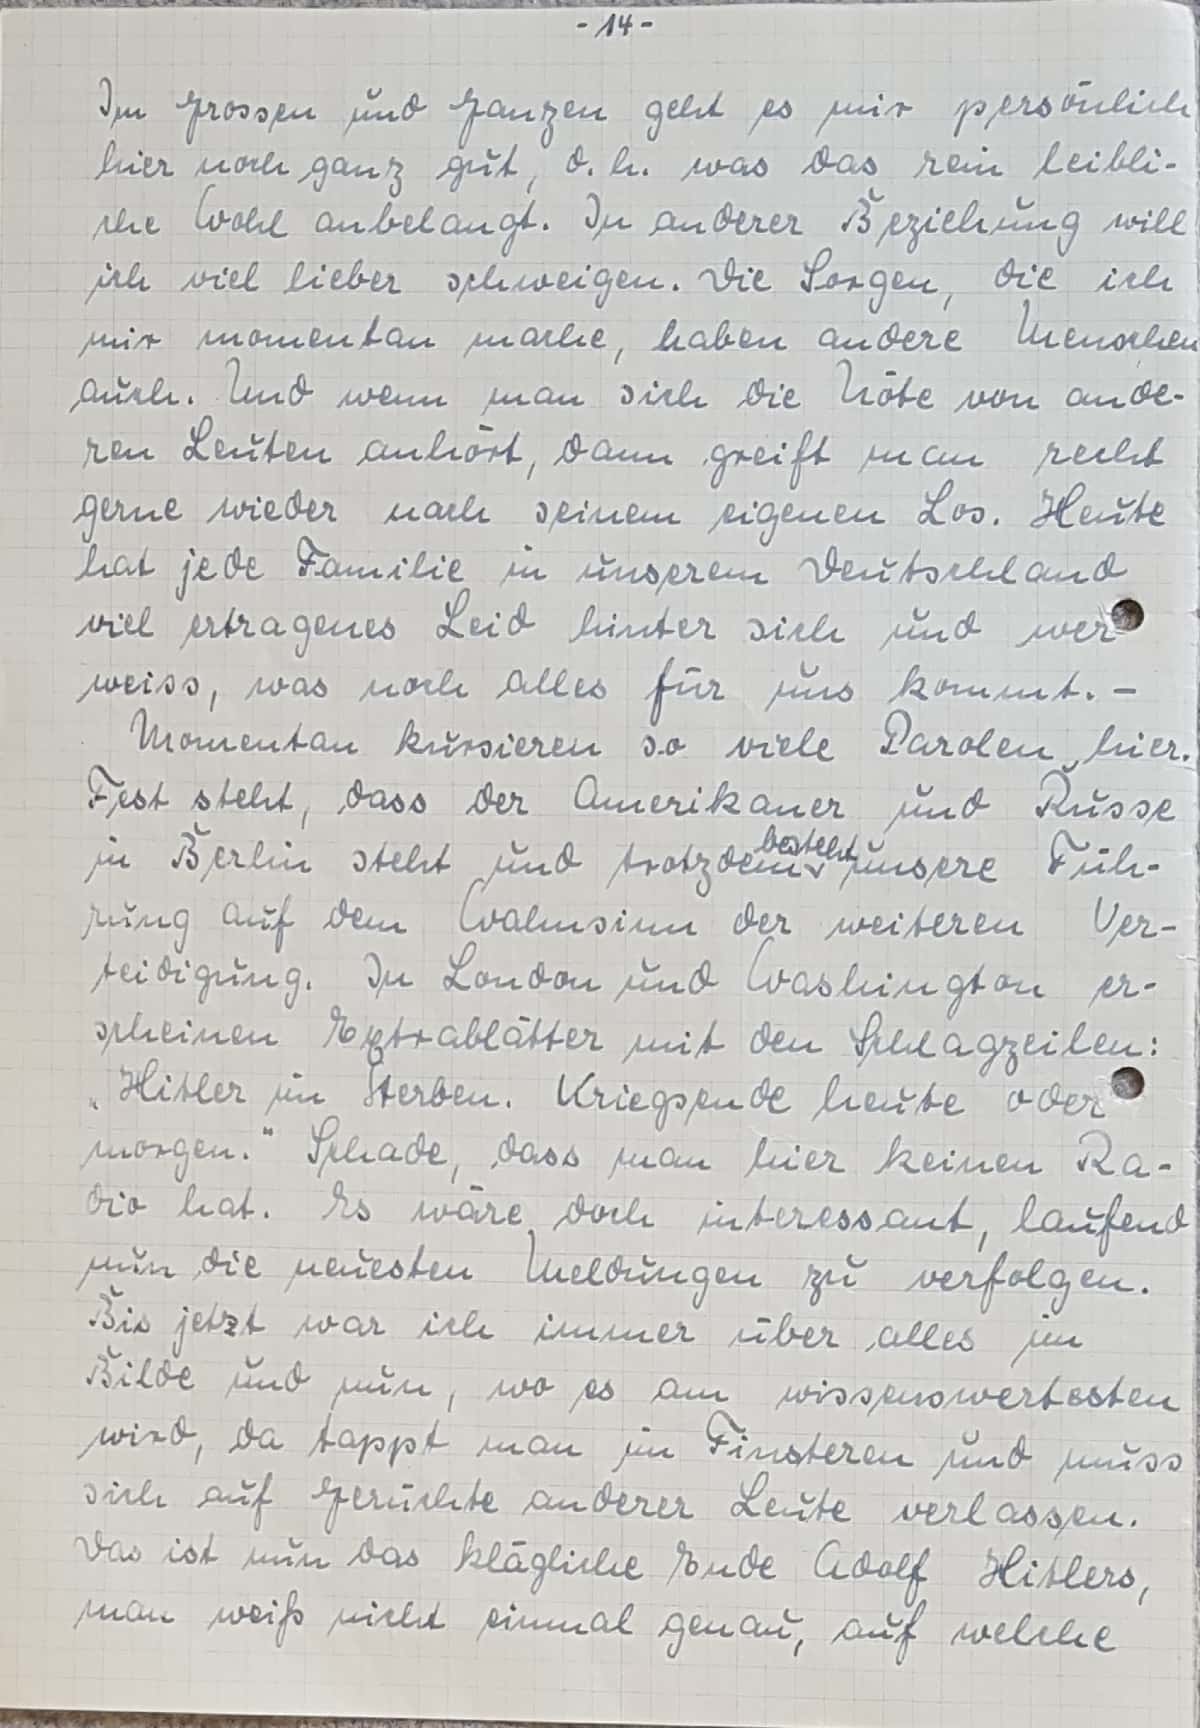 - 14 -
Im Grossen und Ganzen geht es mir persönlich
hier noch ganz gut, d. h. was das rein leibli-
che Wohl anbelangt. In anderer Beziehung will
ich viel lieber schweigen. Die Sorgen, die ich
mir momentan mache, haben andere Menschen
auch. Und wenn man sich die Nöte von ande-
ren Leuten anhört, dann greift man recht
gerne wieder nach seinem eigenen Los. Heute
hat jede Familie in unserem Deutschland
viel ertragenes Leid hinter sich und wer
weiss, was noch alles für uns kommt. -
Momentan kursieren so viele Parolen hier.
Fest steht, dass der Amerikaner und Russe
in Berlin steht und trotzdem besteht unsere Füh-
rung auf dem Wahnsinn der weiteren Ver-
teidigung. In London und Washington er-
scheinen Extrablätter mit den Schlagzeilen:
„Hitler im Sterben. Kriegsende heute oder
morgen." Schade, dass man hier keinen Ra-
dio hat. Es wäre doch interessant, laufend
nun die neuesten Meldungen zu verfolgen.
Bis jetzt war ich immer über alles im
Bilde und nun, wo es am wissenswertesten
wird, da tappt man im Finsteren und muss
sich auf Gerüchte anderer Leute verlassen.
Das ist nun das klägliche Ende Adolf Hitlers,
man weiß nicht einmal genau, auf welche